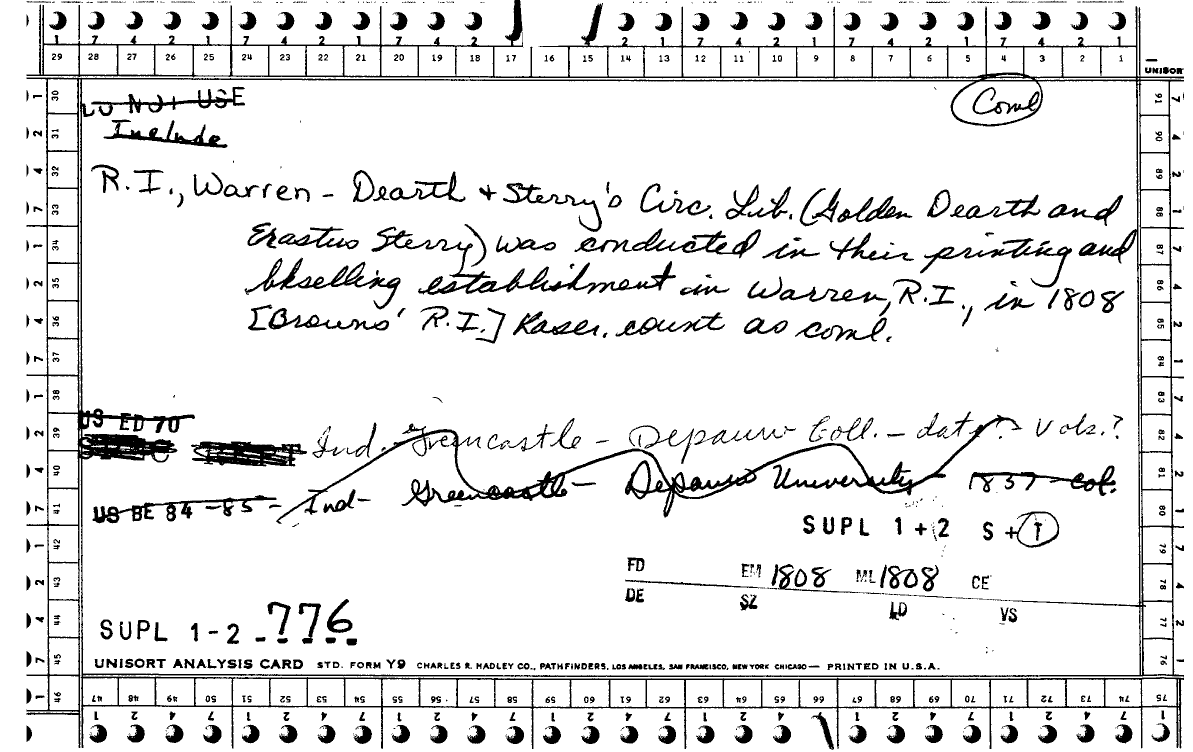 1 7 4 2 1 7 4 2 1 7 4 2 1 2 1 7 4 2 1 7 4 2 1 7 4 2 1
29 28 27 26 25 24 23 22 21 20 19 18 17 16 15 14 13 12 11 10 9 8 7 6 5 4 3 2 1
UNISORT
DO NOT USE
Coml
Include
R.I., Warren - Dearth + Sterry's Circ. Lib. (Golden Dearth and
Erastus Sterry) was conducted in their printing and
bkselling establishment in Warren, R.I., in 1808
[Browns' R.I.] Kaser. count as coml.
US ED 70
Ind. Greencastle - Depauw Coll. - date? - Vols.?
US BE 84-85 - Ind- Greencastle - Depauw University - 1837 - Col.
SUPL 1+2 S+T
FD EM 1808 ML 1808 CE
DE SZ LD VS
SUPL 1-2 - 776
UNISORT ANALYSIS CARD STD. FORM Y9 CHARLES R. HADLEY CO., PATHFINDERS, LOS ANGELES, SAN FRANCISCO, NEW YORK CHICAGO — PRINTED IN U.S.A.
30 31 32 33 34 35 36 37 38 39 40 41 42 43 44 45 46
1 2 4 7 1 2 4 7 1 2 4 7 1 2 4 7 1
91 90 89 88 87 86 85 84 83 82 81 80 79 78 77 76 75
47 48 49 50 51 52 53 54 55 56 57 58 59 60 61 62 63 64 65 66 67 68 69 70 71 72 73 74
1 2 4 7 1 2 4 7 1 2 4 7 1 2 4 7 1 2 4 7 1 2 4 7 1 2 4 7 1